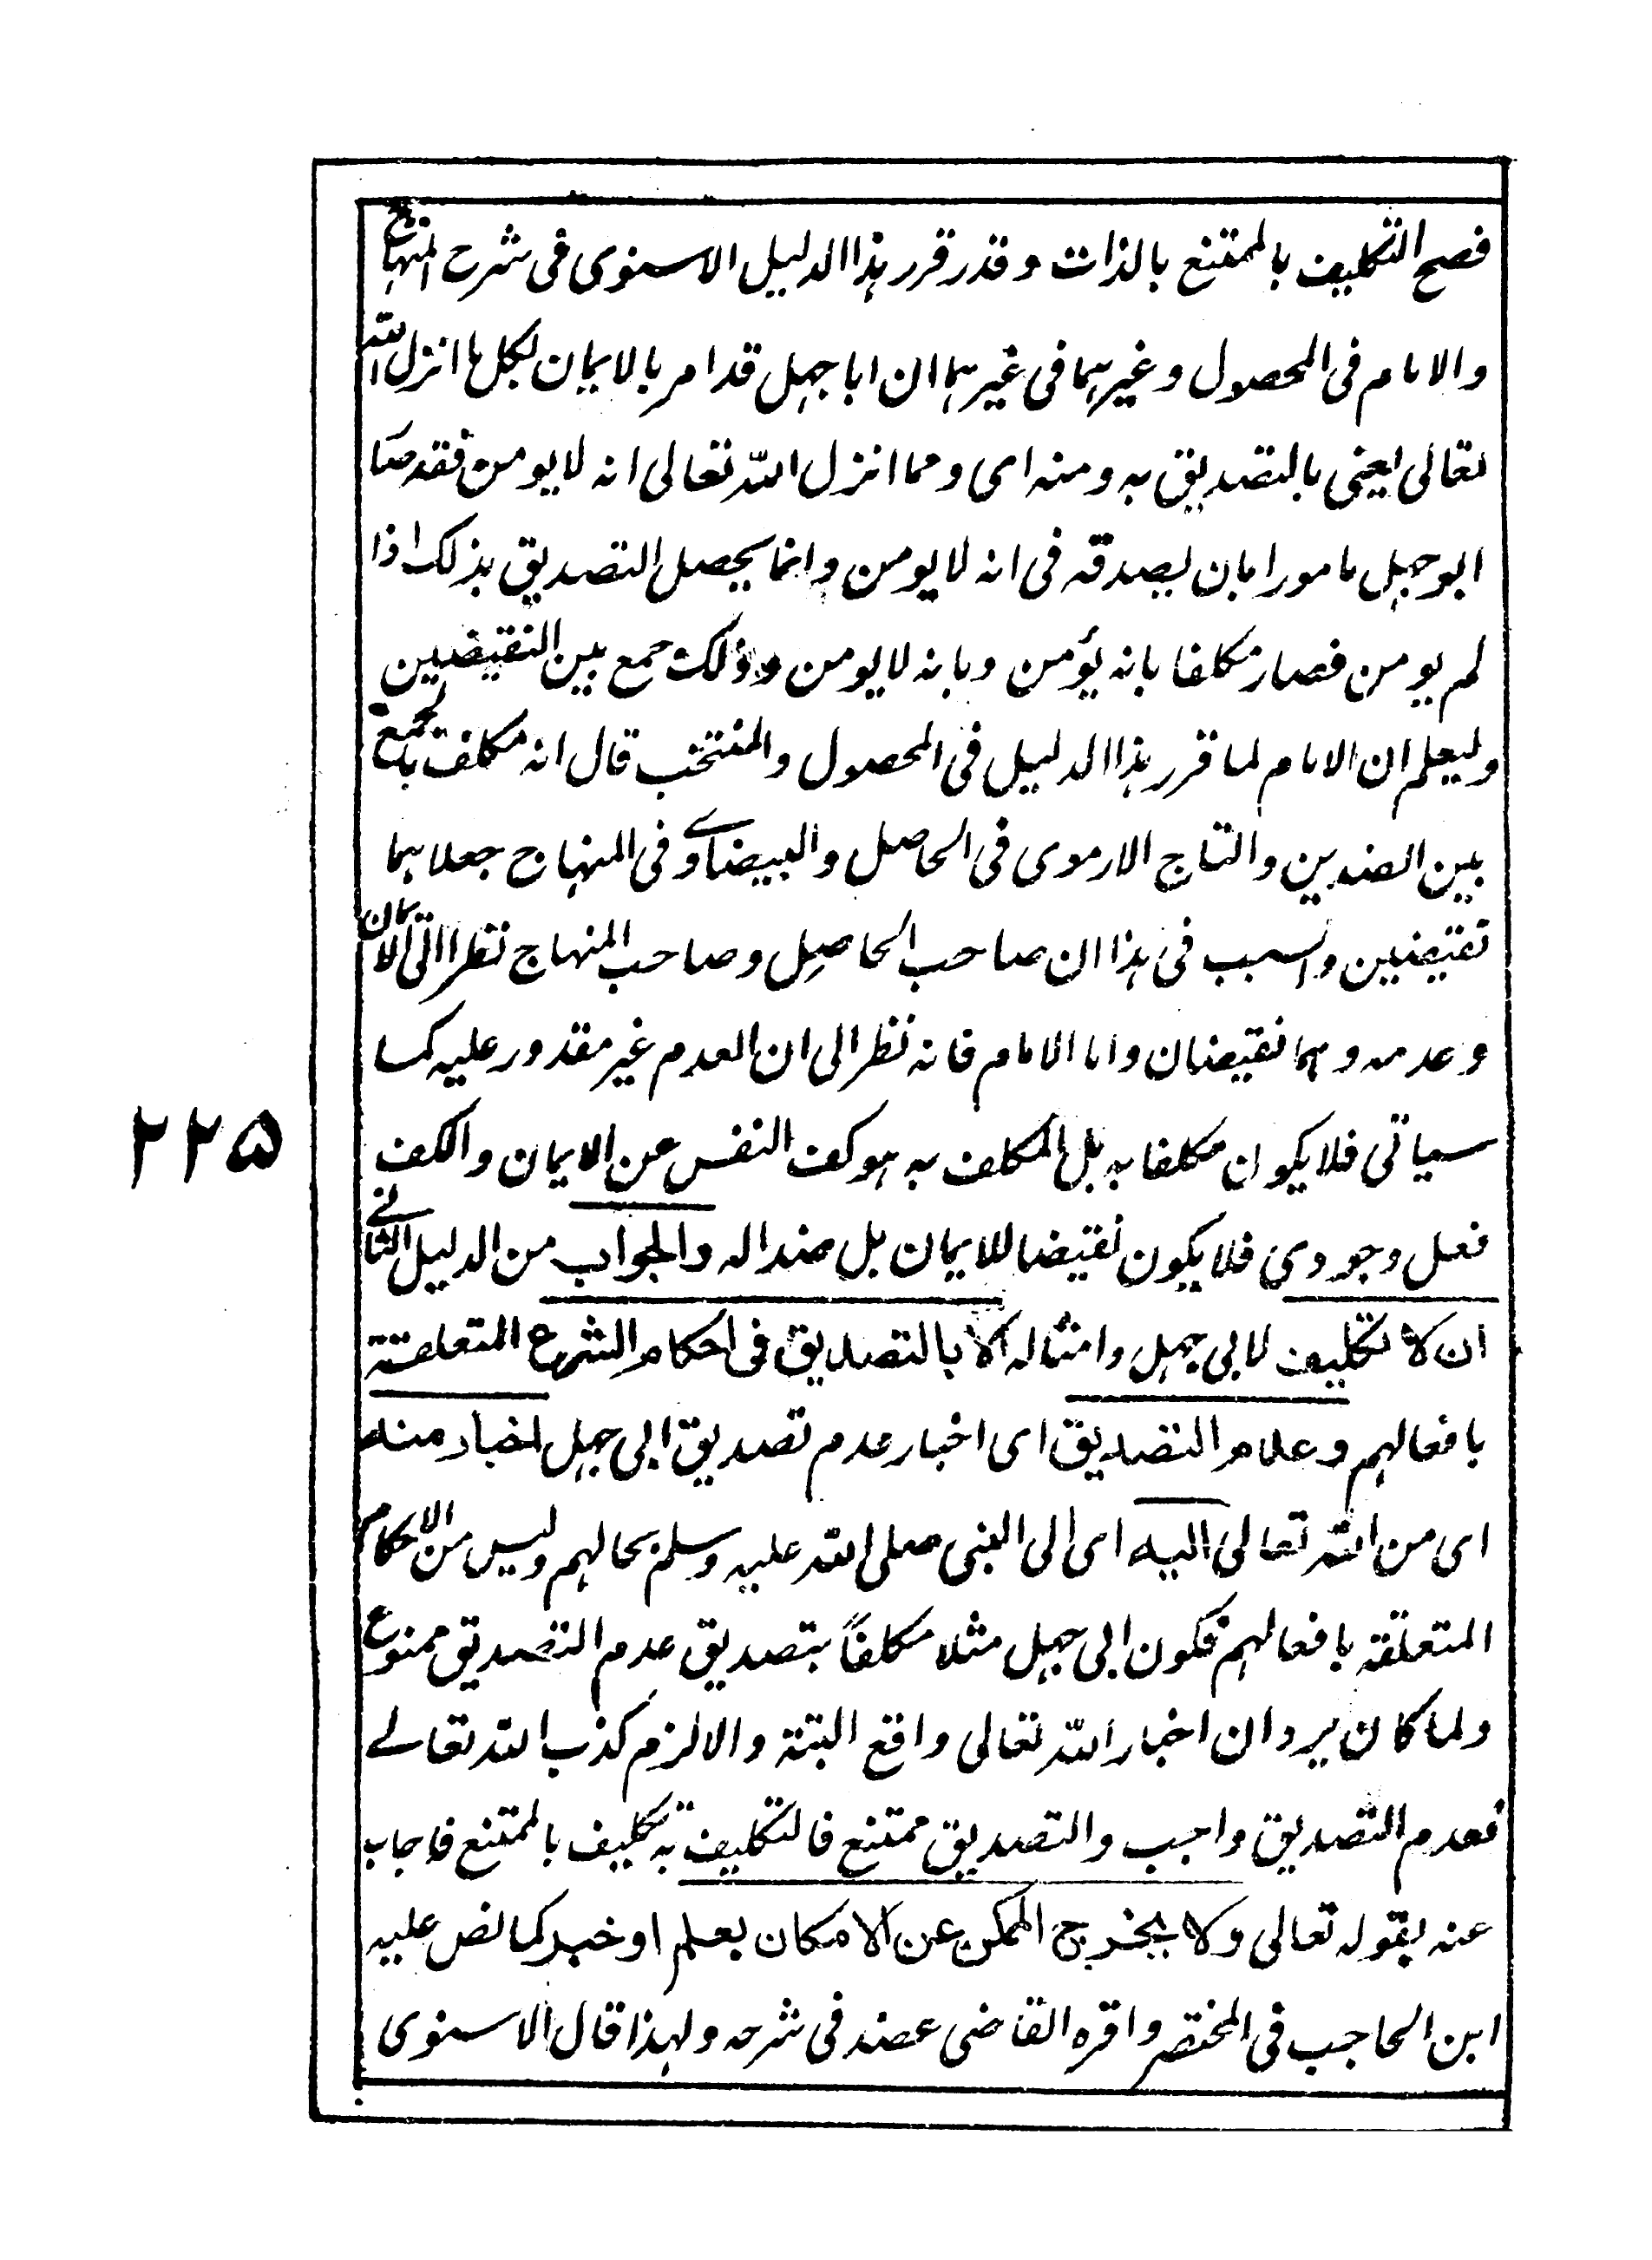 فصح التكليف بالممتنع بالذات وقد قرر هذا الدليل الاسنوى فى شرح المنهاج
والامام فى المحصول وغيرهما فى غيرهما ان ابا جهل قد امر بالايمان بكل ما انزل الله
تعالى يعنى بالتصديق به ومنه اى ومما انزل الله تعالى انه لا يومن فقد صار
ابو جهل مامورا بان يصدقه فى انه لا يومن وانما يحصل التصديق بذلك اذا
لم يومن فصار مكلفا بانه يؤمن وبانه لا يومن وذلك جمع بين النقيضين
وليعلم ان الامام لما قرر هذا الدليل فى المحصول والمنتخب قال انه مكلف بالجمع
بين الضدين والتاج الارموى فى الحاصل والبيضاوى فى المنهاج جعلاهما
نقيضين والسبب فى هذا ان صاحب الحاصل وصاحب المنهاج نظرا الى الايمان
وعدمه وهما نقيضان واما الامام فانه نظر الى ان العدم غير مقدور عليه كما
سياتى فلا يكون مكلفا به بل المكلف به هو كف النفس عن الايمان والكف
فعل وجودى فلا يكون نقيضا للايمان بل ضدا له والجواب من الدليل الثانى
ان لا تكليف لابى جهل وامثاله الا بالتصديق فى احكام الشرع المتعلقة
بافعالهم وعدم التصديق اى اخبار عدم تصديق ابى جهل اخبار منه
اى من الله تعالى اليه اى الى النبى صلى الله عليه وسلم بحالهم وليس من الاحكام
المتعلقة بافعالهم فكون ابى جهل مثلا مكلفاً بتصديق عدم التصديق ممنوع
ولما كان يرد ان اخبار الله تعالى واقع البتة والا لزم كذب الله تعالى
فعدم التصديق واجب والتصديق ممتنع فالتكليف به تكليف بالممتنع فاجاب
عنه بقوله تعالى ولا يخرج الممكن عن الامكان بعلم او خبر كما نص عليه
ابن الحاجب فى المختصر واقره القاضى عضد فى شرحه ولهذا قال الاسنوى
٢٢٥